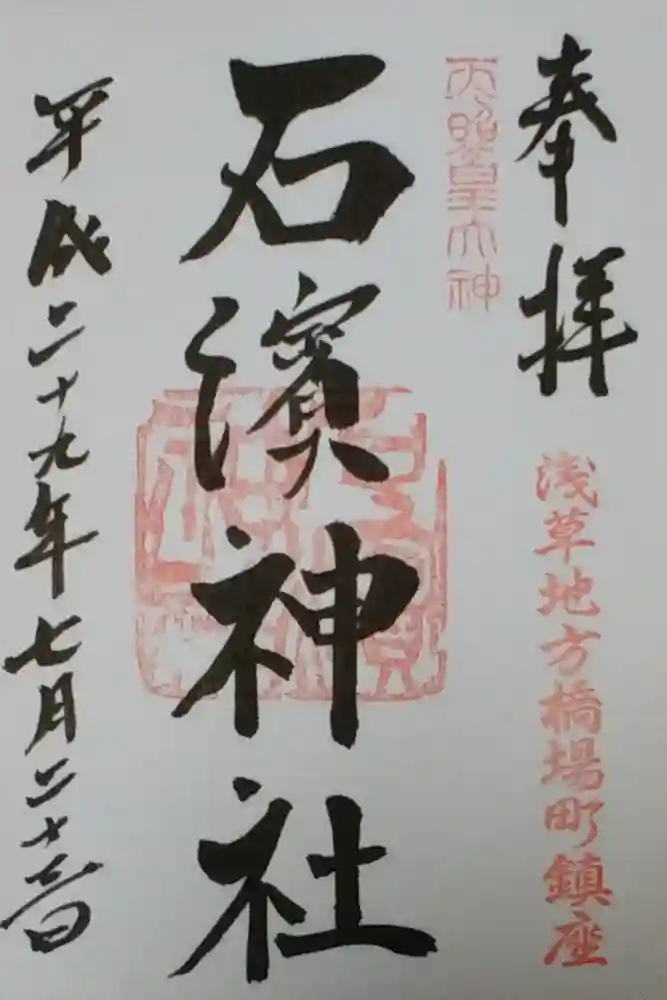 奉拝
浅草地方橋場町鎮座
天照皇大神
石濱神社
平成二十九年七月二十六日